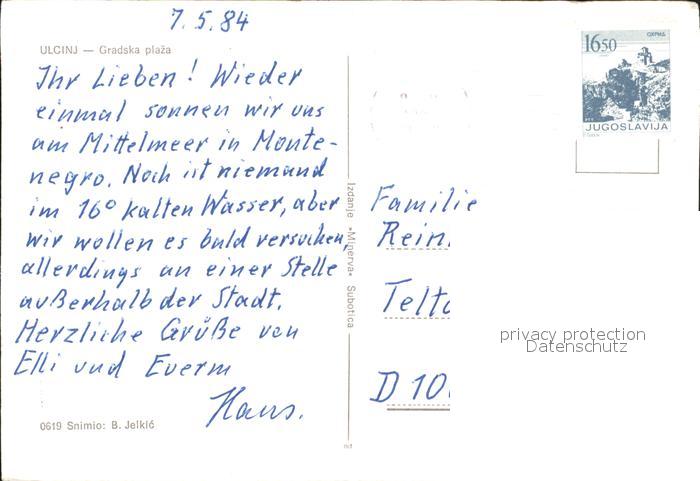 7.5.84
ULCINJ — Gradska plaža
Ihr Lieben! Wieder
einmal sonnen wir uns
am Mittelmeer in Monte-
negro. Noch ist niemand
im 16° kalten Wasser, aber
wir wollen es bald versuchen,
allerdings an einer Stelle
außerhalb der Stadt.
Herzliche Grüße von
Elli und Euerm
Hans.
0619 Snimio: B. Jelkić
Izdanje »Minerva« Subotica
1650
ОХРИД
JUGOSLAVIJA
Familie
Rein
Telto
D 10
privacy protection
Datenschutz